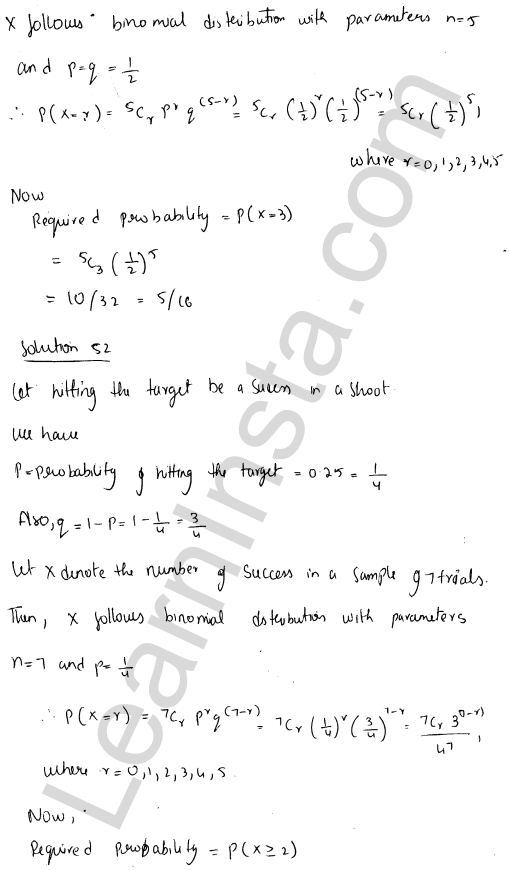 X follows binomial distribution with parameters n=5
and p=q = 1/2
∴ P(X=r) = 5Cr p^r q^(5-r) = 5Cr (1/2)^r (1/2)^(5-r) = 5Cr (1/2)^5,
where r=0,1,2,3,4,5
Now
Required probability = P(X=3)
= 5C3 (1/2)^5
= 10/32 = 5/16
Solution 52
Let hitting the target be a success in a shoot.
We have
P = probability of hitting the target = 0.25 = 1/4
Also, q = 1-P = 1 - 1/4 = 3/4
Let X denote the number of success in a sample of 7 trials.
Then, X follows binomial distribution with parameters
n=7 and p=1/4
∴ P(X=r) = 7Cr p^r q^(7-r) = 7Cr (1/4)^r (3/4)^7-r = 7Cr 3^(7-r) / 4^7,
where r=0,1,2,3,4,5.
Now,
Required probability = P(X≥2)
LearnInsta.com